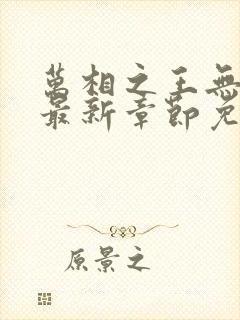 萬相之王無
最新章節免
原景之